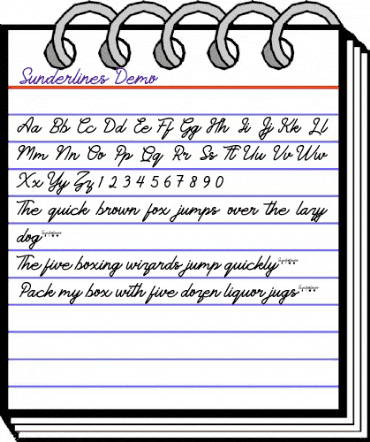 Sunderlines Demo
Aa Bb Cc Dd Ee Ff Gg Hh Ii Jj Kk Ll
Mm Nn Oo Pp Qq Rr Ss Tt Uu Vv Ww
Xx Yy Zz 1 2 3 4 5 6 7 8 9 0
The quick brown fox jumps over the lazy
dog
The five boxing wizards jump quickly
Pack my box with five dozen liquor jugs